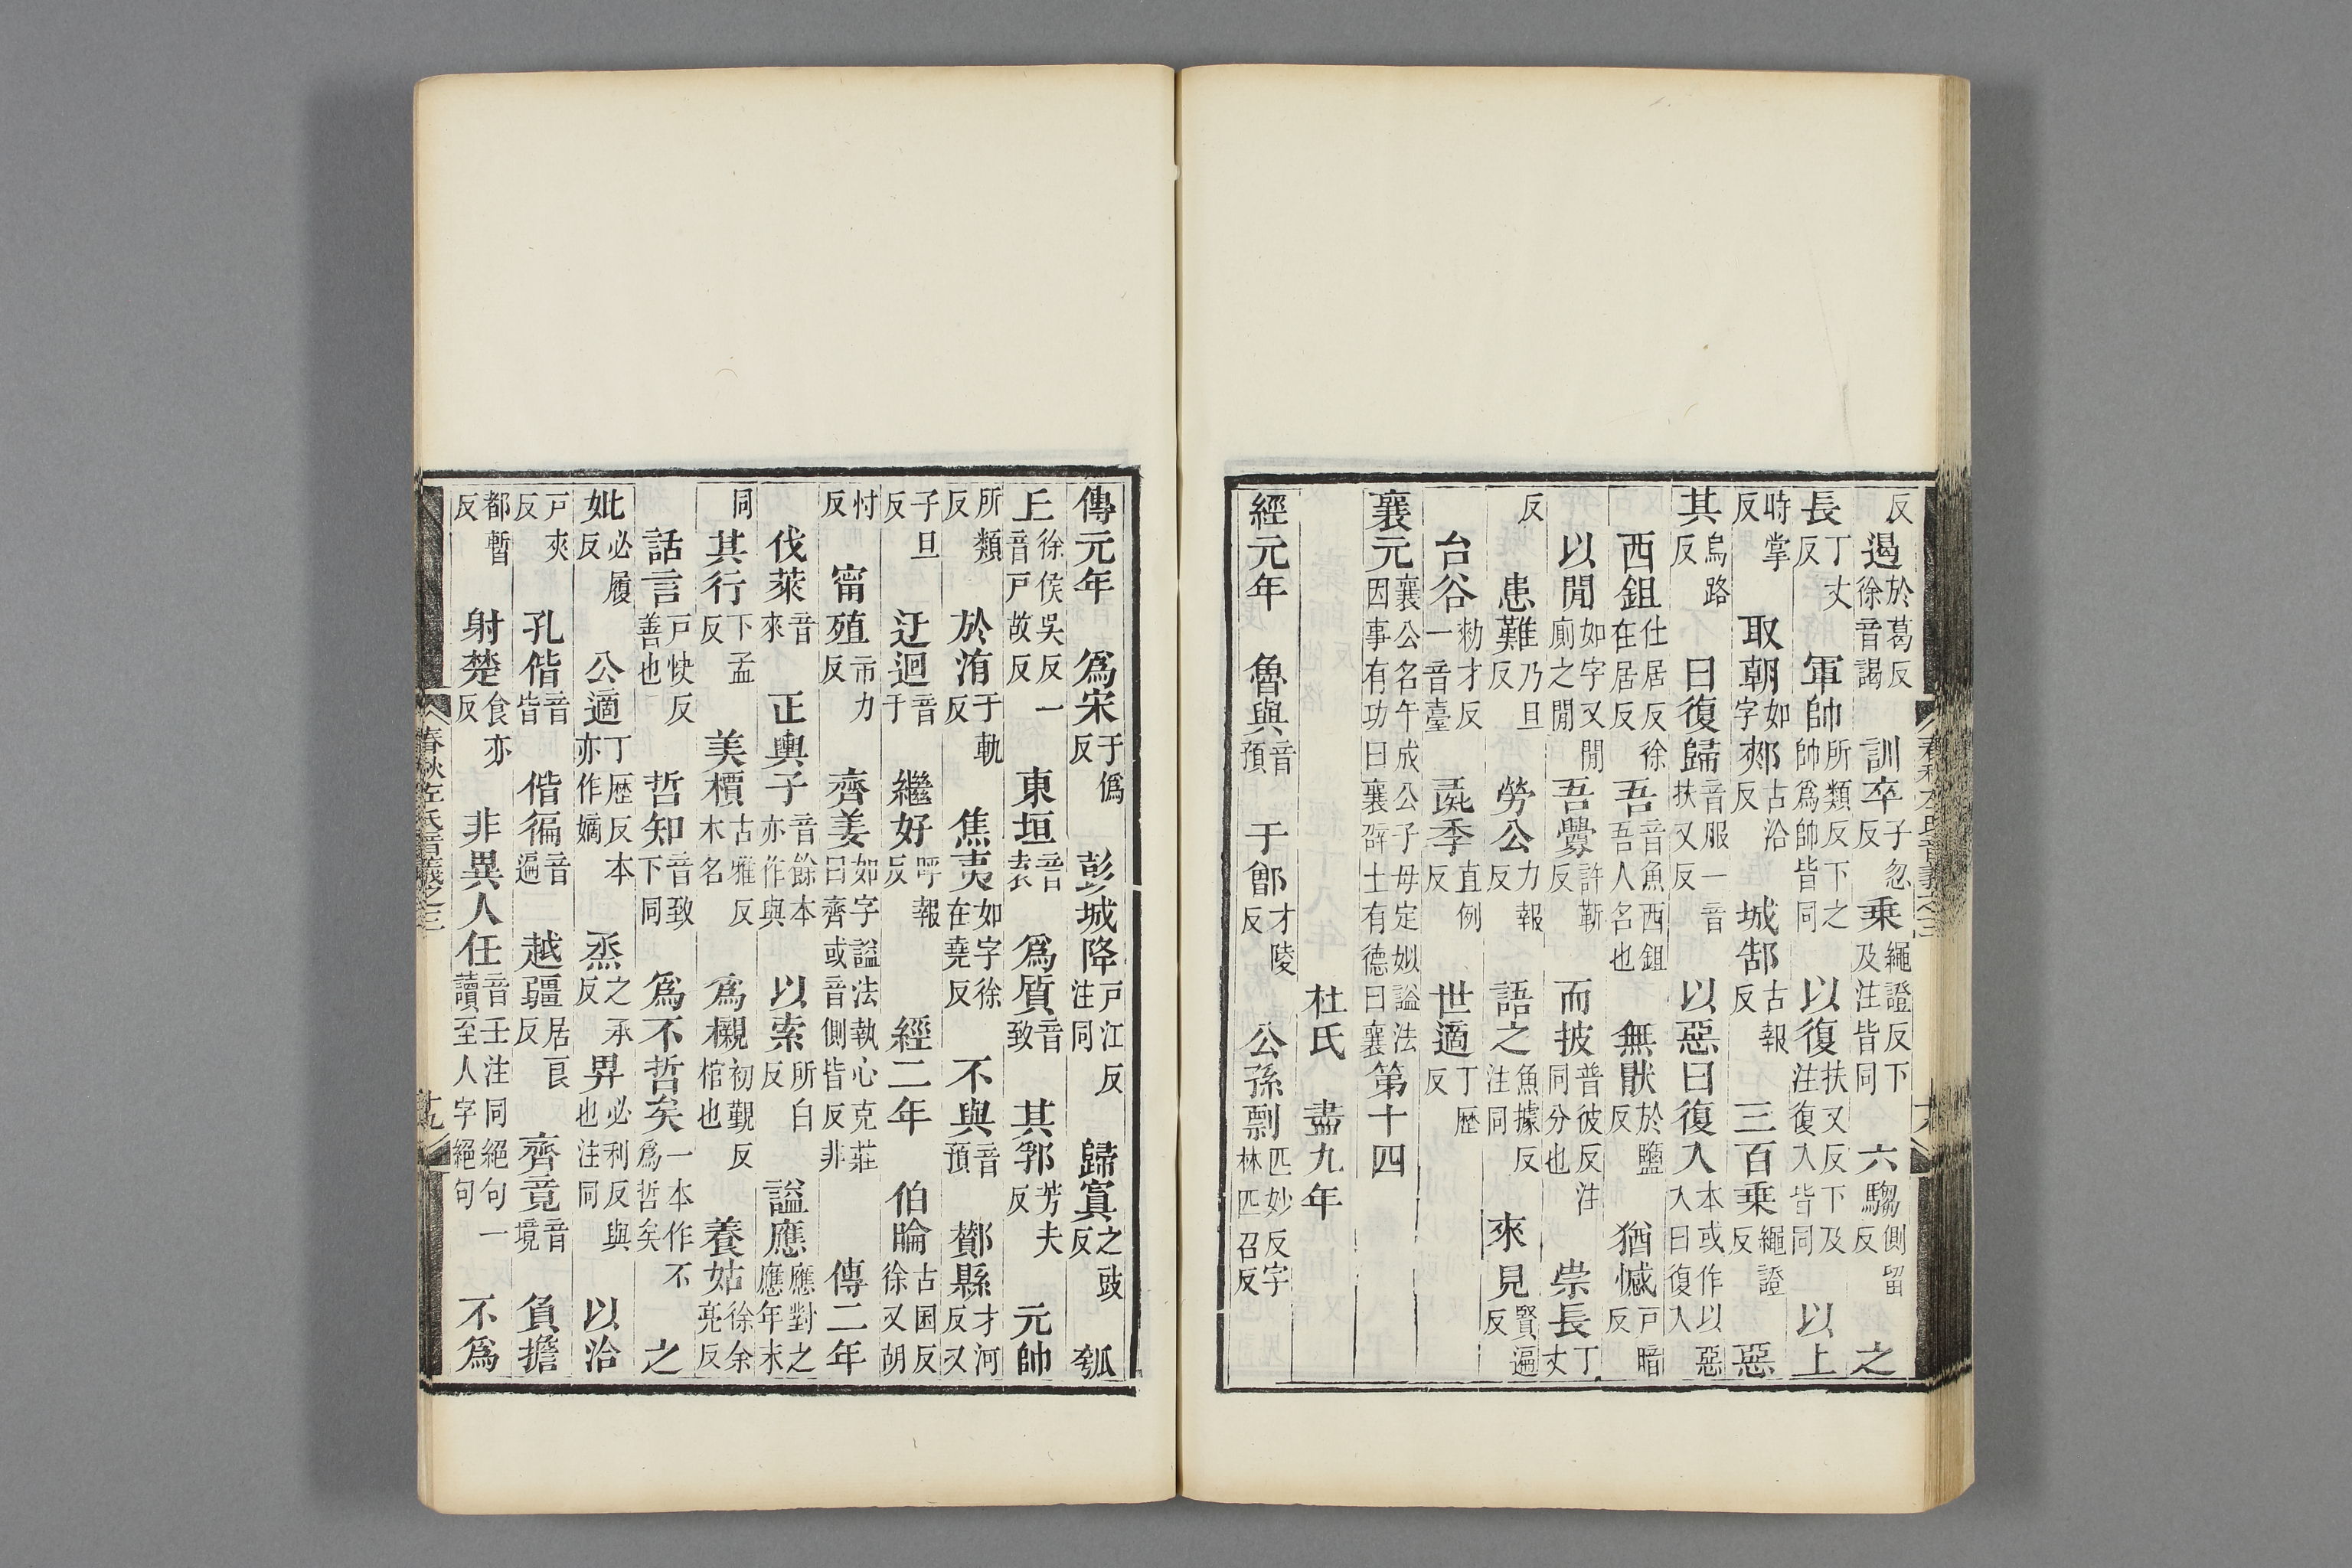 反 遏於葛反徐音謁 訓卒子忽反 乗繩證反下及注皆同 六騶側留反 之
長丁丈反 軍帥所類反下之帥爲帥皆同 以復扶又反下及注復入皆同 以上
時掌反 取朝如字 郟古洽反 城郜古報反 三百乗繩證反 惡
其烏路反 曰復歸音服一音扶又反 以惡曰復入本或作以惡入曰復入
西鉏仕居反徐在居反 吾音魚西鉏吾人名也 無猒於鹽反 猶憾戸暗反
以閒如字又閒廁之閒 吾釁許靳反 而披普彼反注同分也 崇長丁丈
反 患難乃旦反 勞公力報反 語之魚據反注同 來見賢遍反
台谷勑才反一音臺 彘季直例反 世適丁歴反
襄元襄公名午成公子母定姒謚法因事有功曰襄辟土有德曰襄 第十四
杜氏 盡九年
經元年 魯與音預 于鄫才陵反 公孫剽匹妙反字林匹召反
春秋左氏音義之三 十八
傳元年 爲宋于僞反 彭城降戸江反注同 歸寘之豉反 瓠
丘徐侯吳反一音戸故反 東垣音袁 爲質音致 其郛芳夫反 元帥
所類反 於洧于軌反 焦夷如字徐在堯反 不與音預 鄼縣才河反又
子旦反 迂迴音于 繼好呼報反 經二年 伯睔古囷反徐又胡
忖反 甯殖市力反 齊姜如字謚法執心克莊曰齊或音側皆反非 傳二年
伐萊音來 正輿子音餘本亦作與 以索所白反 謚應應對之應年末
同 其行下孟反 美檟古雅反木名 爲櫬初覲反棺也 養姑徐余亮反
話言戸快反善也 哲知音致下同 爲不哲矣一本作不爲哲矣 之
妣必履反 公適丁歴反本亦作嫡 烝之承反 畀必利反與也注同 以洽
戸夾反 孔偕音皆 偕徧音遍 越疆居良反 齊竟音境 負擔
都暫反 射楚食亦反 非異人任音壬注同絕句一讀至人字絕句 不爲
春秋左氏音義之三 十九